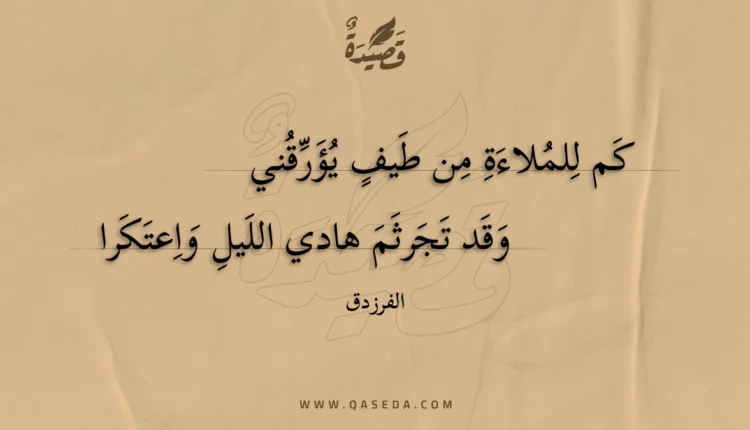 قَصِيدَةٌ
كَم لِلمُلاءَةِ مِن طَيفٍ يُؤَرِّقُني
وَقَد تَجَرثَمَ هادي اللَيلِ وَاِعتَكَرا
الفرزدق
WWW.QASEDA.COM